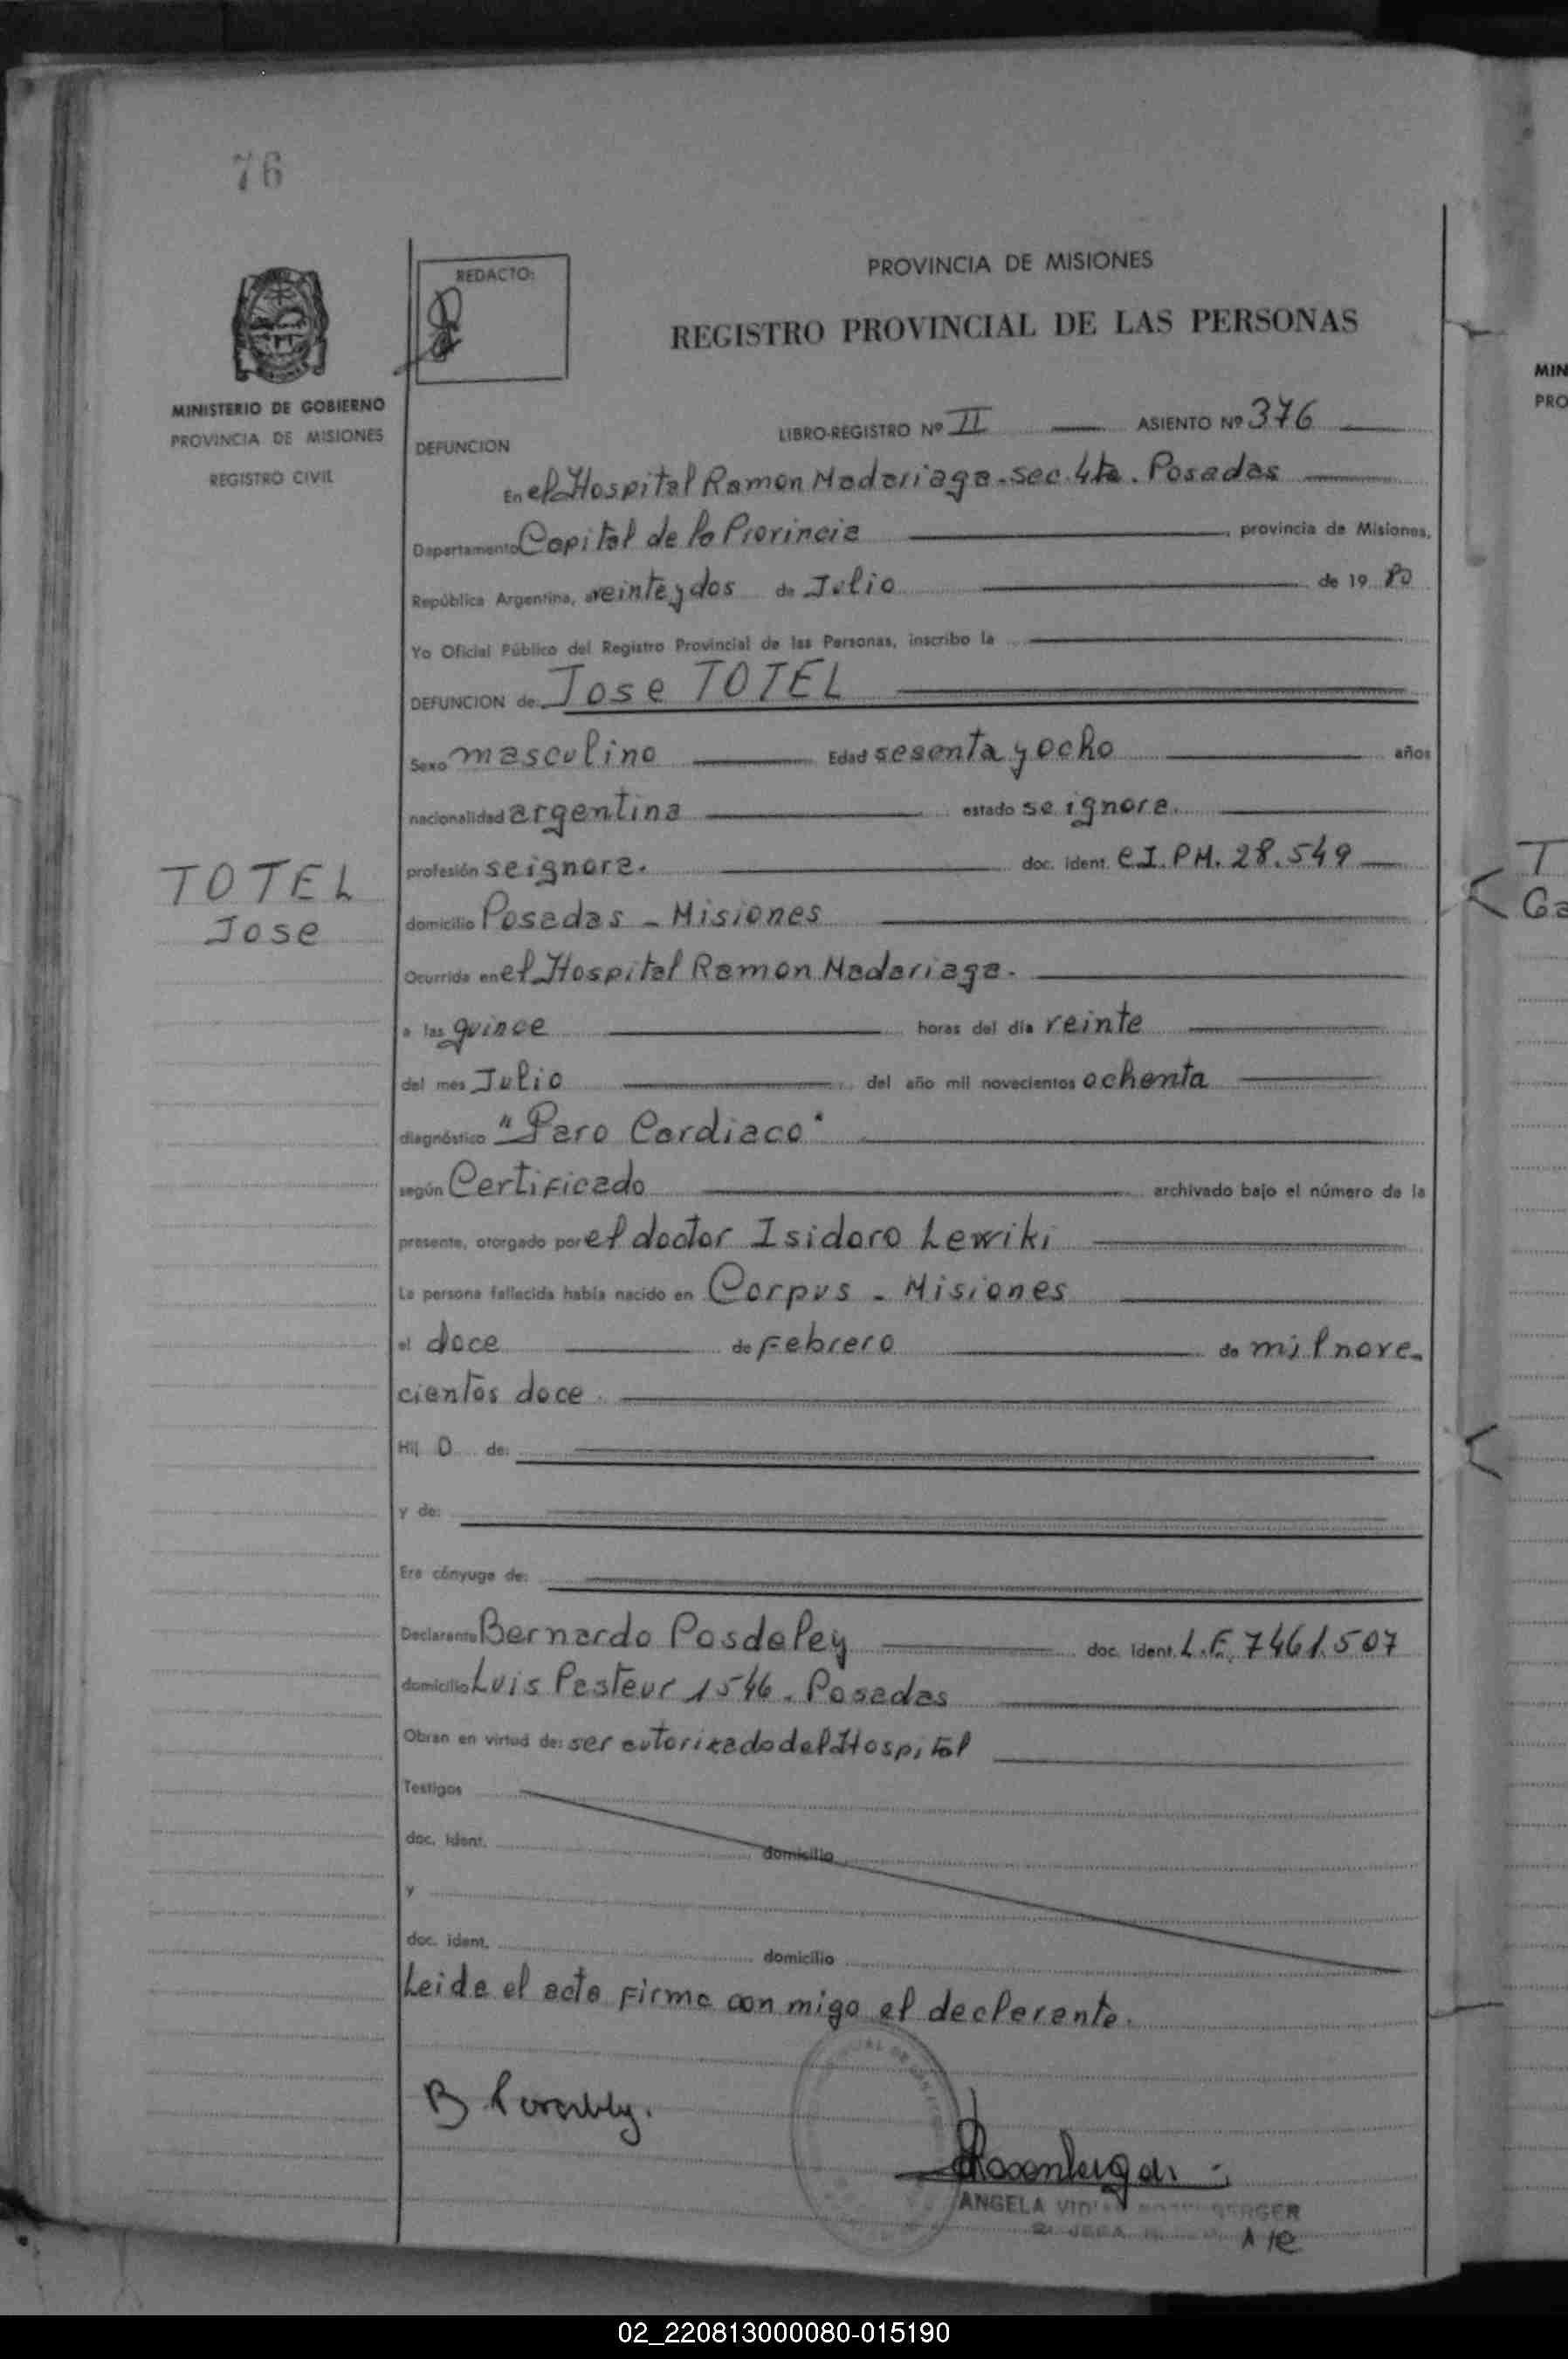 76
REDACTO:
PROVINCIA DE MISIONES
REGISTRO PROVINCIAL DE LAS PERSONAS
MINISTERIO DE GOBIERNO
PROVINCIA DE MISIONES
REGISTRO CIVIL
MIN
PRO
DEFUNCION
LIBRO-REGISTRO Nº II ASIENTO Nº 376
En el Hospital Ramon Madariaga-sec. 4ta. Posadas
Departamento Capital de la Provincia, provincia de Misiones,
República Argentina, a veinte y dos de Julio de 19 80
Yo Oficial Público del Registro Provincial de las Personas, inscribo la
DEFUNCION de: Jose TOTEL
Sexo masculino Edad sesenta y ocho años
nacionalidad argentina estado se ignora.
profesión se ignora. doc. ident. C.I. PM. 28.549
TOTEL
Jose
T
Ga
domicilio Posadas - Misiones
Ocurrida en el Hospital Ramon Madariaga.
a las quince horas del día veinte
del mes Julio del año mil novecientos ochenta
diagnóstico "Paro Cardiaco"
según Certificado archivado bajo el número de la
presente, otorgado por el doctor Isidoro Lewiki
La persona fallecida había nacido en Corpus - Misiones
el doce de Febrero de mil nove-
cientos doce
Hij o de:
y de:
Era cónyuge de:
Declarante Bernardo Posdeley doc. Ident. L.E. 7461.507
domicilio Luis Pasteur 1546. Posadas
Obran en virtud de: ser autorizado del Hospital
Testigos
doc. Ident. domicilio
y
doc. ident. domicilio
Leida el acta firma con migo el declarante.
B
ANGELA
A/C
02_220813000080-015190